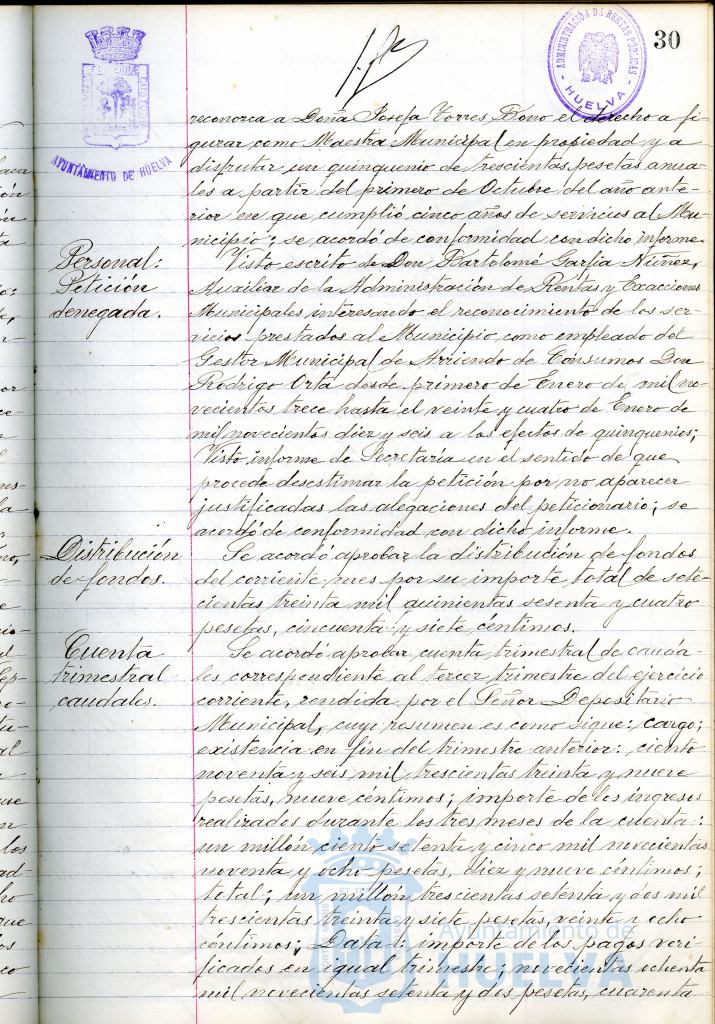 30
ADMINISTRACIÓN DE RENTAS PÚBLICAS
- HUELVA -
AYUNTAMIENTO DE HUELVA
reconozca a Doña Josefa Torres Bono el derecho a fi-
gurar como Maestra Municipal en propiedad y a
disfrutar un quinquenio de trescientas pesetas anua-
les a partir del primero de Octubre del año ante-
rior en que cumplió cinco años de servicios al Mu-
nicipio; se acordó de conformidad con dicho informe.
Personal:
Petición
denegada.
Visto escrito de Don Bartolomé Garfia Núñez,
Auxiliar de la Administración de Rentas y Exacciones
Municipales interesando el reconocimiento de los ser-
vicios prestados al Municipio como empleado del
Gestor Municipal de Arriendo de Consumos Don
Rodrigo Orta desde primero de Enero de mil no-
vecientos trece hasta el veinte y cuatro de Enero de
mil novecientos diez y seis a los efectos de quinquenios;
Visto informe de Secretaría en el sentido de que
procede desestimar la petición por no aparecer
justificadas las alegaciones del peticionario; se
acordó de conformidad con dicho informe.
Distribución
de fondos.
Se acordó aprobar la distribución de fondos
del corriente mes por su importe total de sete-
cientas treinta mil quinientas sesenta y cuatro
pesetas, cincuenta y siete céntimos.
Cuenta
trimestral
caudales.
Se acordó aprobar cuenta trimestral de cauda-
les correspondiente al tercer trimestre del ejercicio
corriente, rendida por el Señor Depositario
Municipal, cuyo resumen es como sigue: cargo;
existencia en fin del trimestre anterior: ciento
noventa y seis mil trescientas treinta y nueve
pesetas, nueve céntimos; importe de los ingresos
realizados durante los tres meses de la cuenta:
un millón ciento setenta y cinco mil novecientas
noventa y ocho pesetas, diez y nueve céntimos;
total; un millón trescientas setenta y dos mil
trescientas treinta y siete pesetas, veinte y ocho
céntimos; Data: importe de los pagos veri-
ficados en igual trimestre; novecientas ochenta
mil novecientas setenta y dos pesetas, cuarenta
Ayuntamiento de
HUELVA